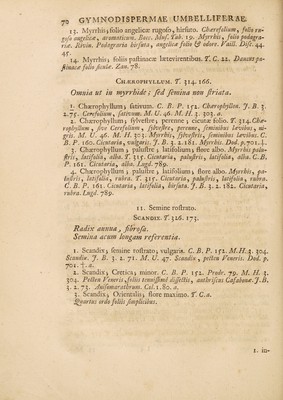 70 GYMNODISPERMAE UMBELLIFERAE
13. Myrrhis; folio angelicæ rugoso, hirsuto. Chærefolium, folio ru-
goso angelicæ, aromaticum. Bocc. Mus. Tab. 19. Myrrhis, folio podagra-
riæ. Rivin. Podagraria hirsuta, angelicæ folio & odore. Vaill. Diss. 44.
45.
14. Myrrhis; foliis pastinacæ lætevirentibus. T. C. 22. Daucus pa-
stinacæ folio siculus. Zan. 78.
CHÆROPHYLLUM. T. 314. 166.
Omnia ut in myrrhide; sed semina non striata.
1. Chærophyllum; sativum. C. B. P. 152. Chærophyllon. J. B. 3.
2. 75. Cerefolium, sativum. M. U. 46. M. H. 3. 303. a.
2. Chærophyllum; sylvestre; perenne; cicutæ folio. T. 314. Chæ-
rophyllum, sive Cerefolium, silvestre, perenne, seminibus lævibus, ni-
gris. M. U. 46. M. H. 303. Myrrhis, sylvestris, seminibus lævibus. C.
B. P. 160. Cicutaria, vulgaris. J. B. 3. 2. 181. Myrrhis. Dod. p. 701.
3. Chærophyllum; palustre; latifolium; flore albo. Myrrhis palu-
stris, latifolia, alba. T. 315. Cicutaria, palustris, latifolia, alba. C. B.
P. 161. Cicutaria, alba. Lugd. 789.
4. Chærophyllum; palustre; latifolium; flore rubro. Myrrhis, pa-
lustris, latifolia, rubra. T. 315. Cicutaria, palustris, latifolia, rubra.
C. B. P. 161. Cicutaria, latifolia, hirsuta. J. B. 3. 2. 182. Cicutaria,
rubra. Lugd. 789.
11. Semine rostrato.
SCANDIX. T. 326. 173.
Radix annua, fibrosa.
Semina acum longam referentia.
1. Scandix; semine rostrato; vulgaris. C. B. P. 152. M. H. 3. 304.
Scandix. J. B. 3. 2. 71. M. U. 47. Scandix, pecten Veneris. Dod. p.
701. a.
2. Scandix; Cretica; minor. C. B. P. 152. Prodr. 79. M. H. 3.
304. Pecten Veneris, foliis tenuissimè dissectis, anthriscus Casabonæ. J. B.
3. 2. 73. Anisomarathrum. Col. 1. 80. a.
3. Scandix; Orientalis; flore maximo. T. C. a.
Quartus ordo foliis simplicibus.
1. in-